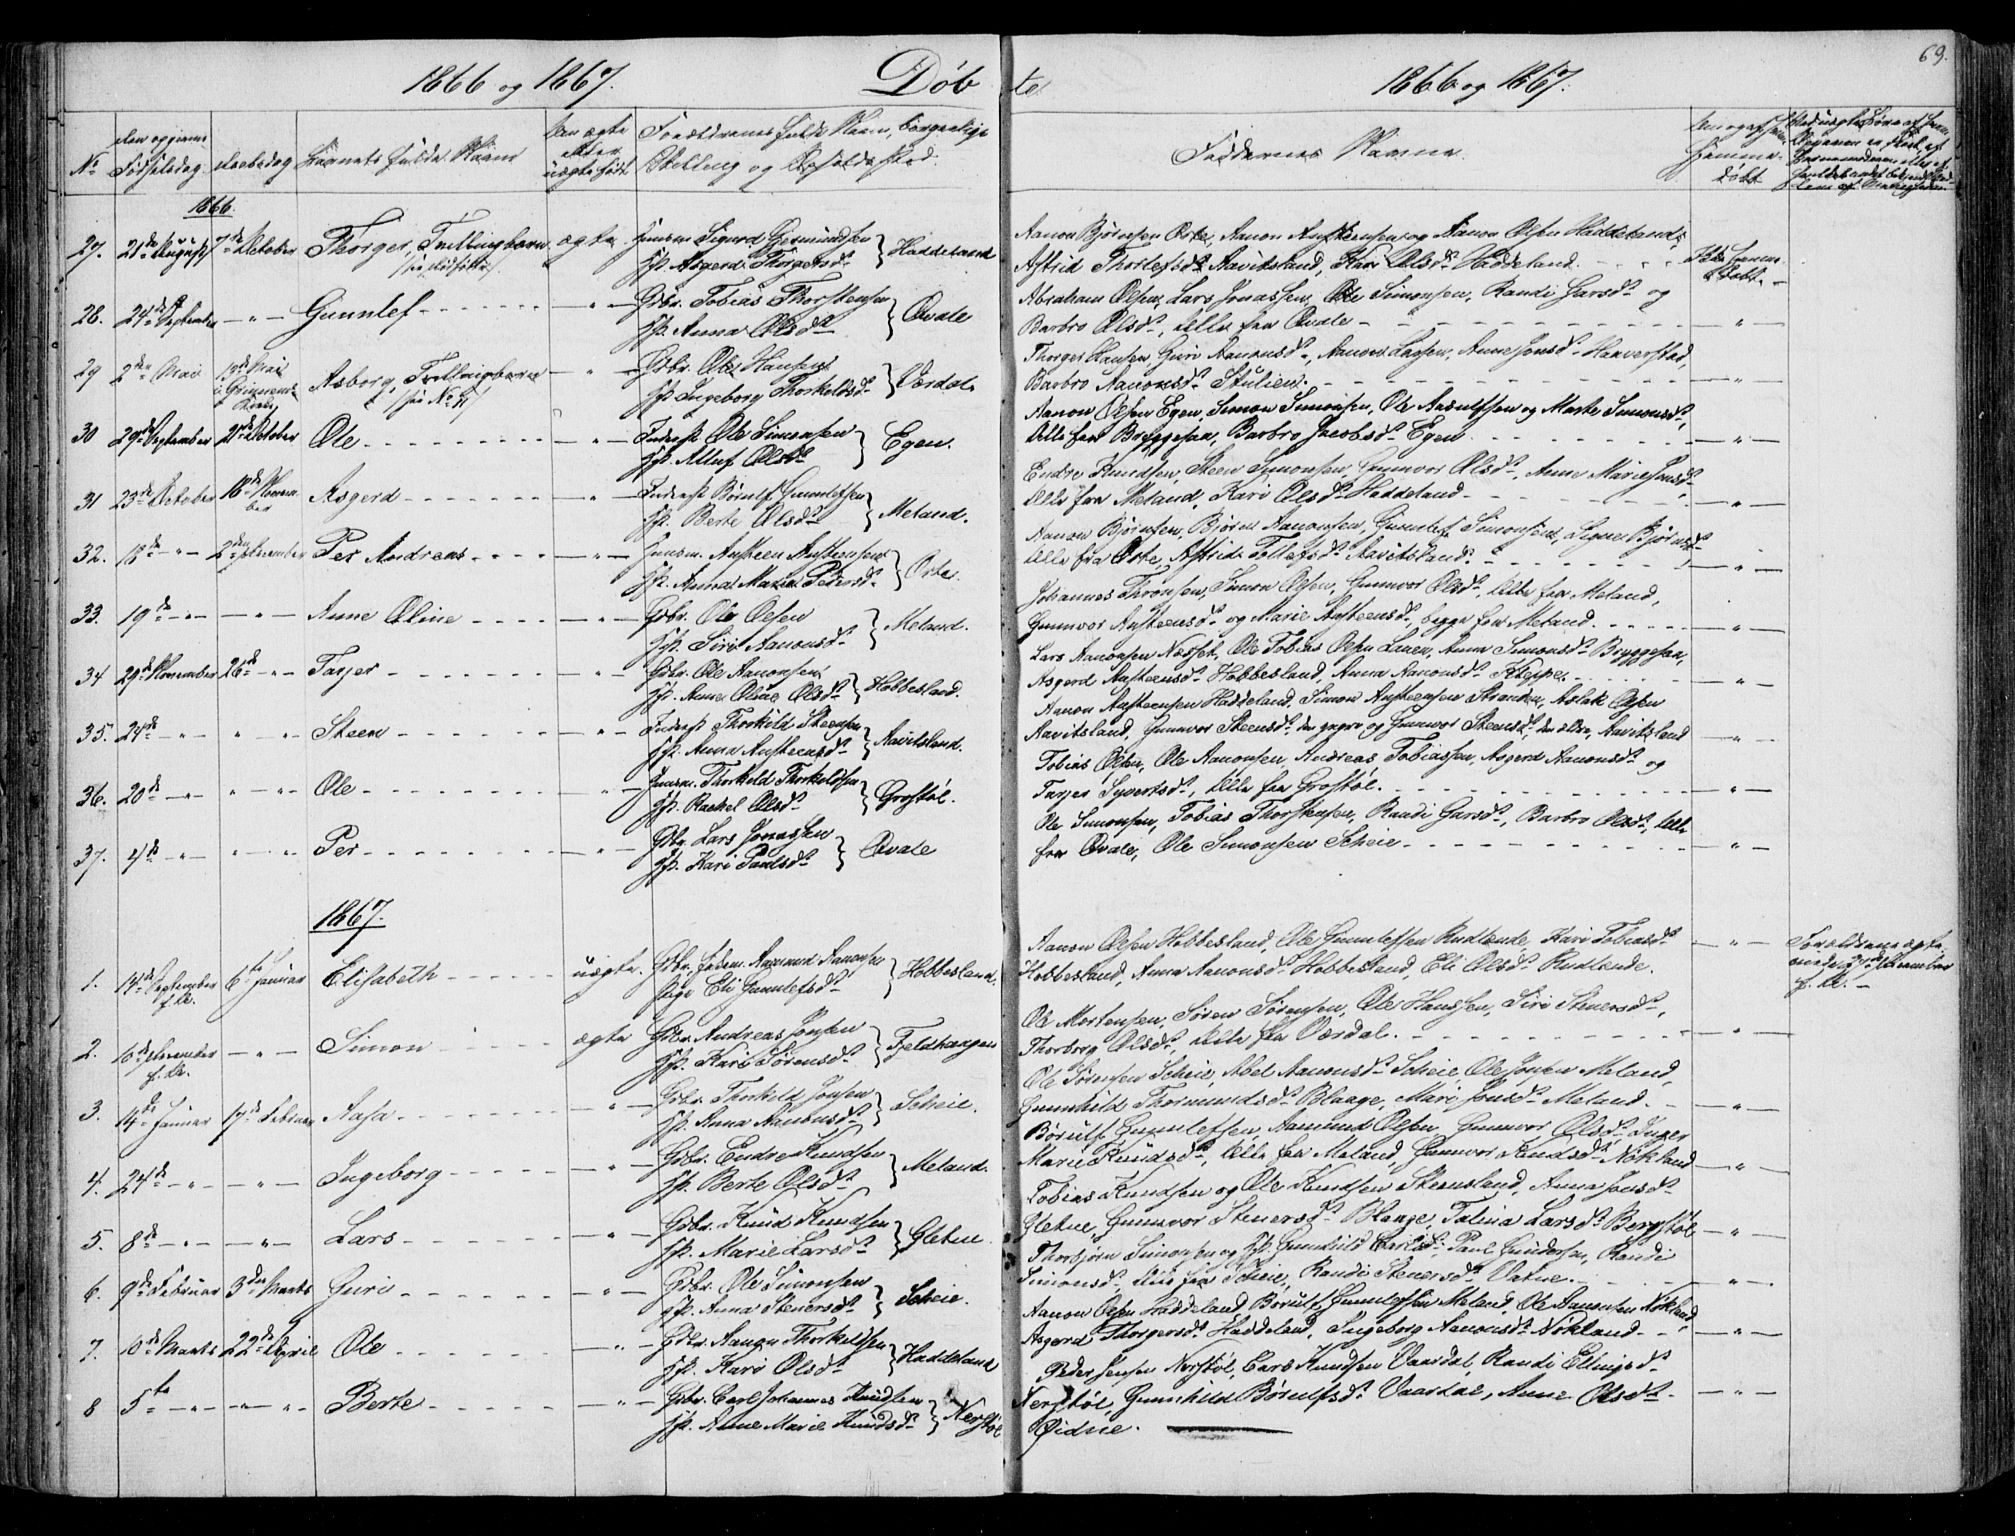 69.
1866 og 1867. Døb
te 1866 og 1867.
No
Fødselsdag
Daabsdag
Barnets fulde Navn
om ægte eller uægte født
Forældrenes fulde Navn, borgerlige
Stilling og Opholdssted.
Faddernes Navne.
Hjemme-
døbt
1866.
27. 21de August 7de October Thorger, Tvillingbarn ægte Huusm. Sigurd Gjermundsen
Hp. Asgerd Thorgersd. } Haddeland
Aanon Bjørnsen Orte, Aanon Austeensen og Aanon Olsen Haddeland,
Astrid Thorlefsd. Aavitsland, Kari Olsd. Haddeland.
28. 24de September — " — Gunnlef — " — Gbr. Tobias Thorstensen
Hp. Anna Olsd. } Qvale
Abraham Olsen, Lars Jonassen, Ole Simonsen, Randi Garsd. og
Barbro Olsd., alle fra Qvale — " —
29 2den Mai 19de Mai i Grimmens Kirke Asborg, Tvillingbarn
/: see No 7 :/ — " — Gbr. Ole Hansen
Hp. Ingeborg Thorkeldsd. } Værdal
Thorger Hansen, Guri Aanonsd., Aanon Larsen, Anne Jonsd. Haaverstad,
Barbro Aanonsd. Stulien. — " —
30 29de September 21de October Ole — " — Inderst Ole Simonsen
Hp. Alluf Olsd. } Egen.
Aanon Olsen Egen, Simon Simonsen, Ole Aasulfsen og Marte Simonsd.,
alle fra Bryggesaa, Barbro Jacobsd. Egen — " —
31 23de October 18de November Asgerd — " — Inderst Børulf Gunnlefsen
Hp. Berte Olsd. } Meland.
Endre Knudsen, Steen Simonsen, Gunnvor Olsd., Anne Marie Jonsd.,
alle fra Meland, Kari Olsd. Haddeland — " —
32. 18de — " — 2den December Per Andreas — " — Huusm. Austeen Austensen
Hp. Anna Maria Pedersd. } Orte.
Aanon Bjørnsen, Bjørn Aanonsen, Gunnlef Simonsen, Signe Bjørnsd.
alle fra Orte, Astrid Tollefsd. Aavitsland. — " —
33. 19de — " — — " — Anne Oline — " — Gbr. Ole Olsen
Hp. Siri Aanonsd. } Meland.
Johannes Thronsen, Simon Olsen, Gunnvor Olsd., alle fra Meland,
Gunnvor Austeensd. og Marie Austeensd., begge fra Meland. — " —
34 29de November 26de — " — Tarjer — " — Gbr. Ole Aanonsen
Hp. Anne Olsd. } Hobbesland.
Lars Aanonsen Næsset, Ole Tobias Olsen Lauen, Anna Simonsd. Bryggesaa,
Asgerd Austeensd. Hobbesland, Anna Aanonsd. Kleppe. — " —
35. 24de " — " " — Steen — " — Inderst Thorkild Steensen
Hp. Anna Austeensd. } Aavitsland.
Aanon Austeensen Haddeland, Simon Austeensen Stranden, Aslak Olsen
Aavitsland, Gunnvor Steensd. den yngre og Gunnvor Steensd., den ældre, Aavitsland — " —
36. 20de — " — " — " — Ole — " — Huusm. Thorkeld Thorkeldsen
Hp. Rachel Olsd. } Grostøl.
Tobias Olsen, Ole Aanonsen, Andreas Tobiassen, Asgerd Aanonsd. og
Tarjer Syvertsd., alle fra Grostøl. — " —
37. 4de — " — " — " Per — " — Gbr. Lars Jonassen
Hp. Kari Paulsd. } Qvale
Ole Simonsen, Tobias Thorstensen, Randi Garsd., Barbro Olsd., alle
fra Qvale, Ole Simonsen Scheie — " —
1867.
1. 14de September f. A. 6te Januar Elisabeth uægte Gbr. Aamund Aanonsen
Pige Eli Gunnlefsd. } Hobbesland.
Aanon Olsen Hobbesland, Ole Gunnlefsen Rudlende, Kari Tobiasd.
Hobbesland, Anna Aanonsd. Hobbesland, Eli Olsd. Rudlende. — " —
Forældrene ægte-
viede 27de December
f. A. —
2. 16de December f. A. — " — Simon ægte Gbr. Andreas Jonsen
Hp. Kari Sørensd. } Fjeldhaugen
Ole Mortensen, Søren Sørensen, Ole Hanssen, Siri Stenersd.,
Thorborg Olsd., alle fra Værdal. — " —
3. 14de Januar 17de Februar Aasa — " — Gbr. Thorkild Jonsen
Hp. Anna Aanonsd. } Scheie.
Ole Sørensen Scheie, Abel Aanonsd. Scheie, Ole Jonsen Meland,
Gunnhild Thormundsd. Blaage, Mari Jonsd. Meland. — " —
4. 24de — " — — " — Ingeborg — " — Gbr. Endre Knudsen
Hp. Berte Olsd. } Meland.
Børulf Gunnlefsen, Aamund Olsen, Gunnvor Olsd., Inger
Marie Knudsd., alle fra Meland, Gunnvor Knudsd. Nökland — " —
5. 8de — " — — " — Lars — " — Gbr. Knud Knudsen
Hp. Marie Larsd. } Gletne.
Tobias Knudsen og Ole Knudsen Steensland, Anna Jonsd.
Gletne, Gunnvor Stenersd. Blaage, Talina Larsd. Bergstøl — " —
6. 9de Februar 3die Marts Guri — " — Gbr. Ole Simonsen
Hp. Anna Stenersd. } Scheie.
Thorbjørn Simonsen og Hp. Gunhild Carlsd., Paul Gundersen, Randi
Simonsd. alle fra Scheie, Randi Stenersd. Vatne. — " —
7. 10de Marts 22de April Ole — " — Gbr. Aanon Thorkeldsen
Hp. Kari Olsd. } Haddeland
Aanon Olsen Haddeland, Børulf Gunnlefsen Meland, Ole Aanonsen Nökland,
Asgerd Thorgersd. Haddeland, Ingeborg Aanonsd. Nökland — " —
8 5te — " — — " " — Berte — " — Gbr. Carl Johannes Knudsen
Hp. Anne Marie Knudsd. } Nerstøl
Peder Jensen Nerstøl, Carl Knudsen Vaardal, Randi Ellingsd.
Nerstøl, Gunnhild Børulfsd. Vaardal, Anne Olsd. — " —
Øidne.